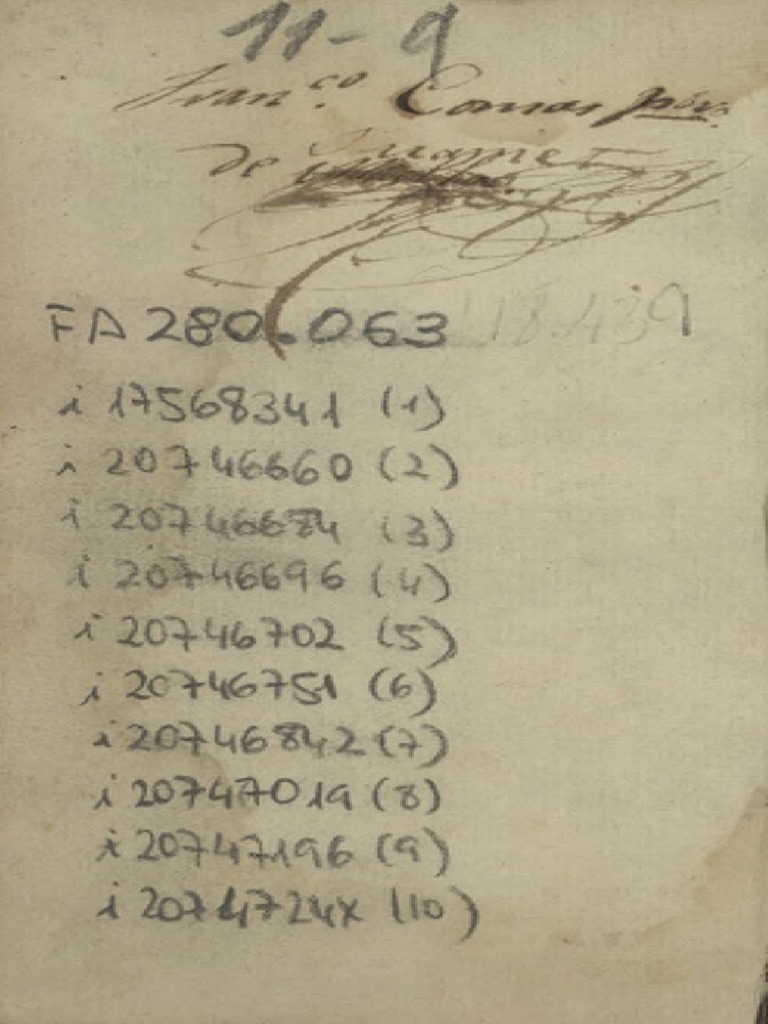 11-9
Fran.co Comas pbro.
de
FA 280.063 118.439
i 17568341 (1)
i 20746660 (2)
i 20746684 (3)
i 20746696 (4)
i 20746702 (5)
i 20746751 (6)
i 20746842 (7)
i 20747019 (8)
i 20747196 (9)
i 2074724x (10)